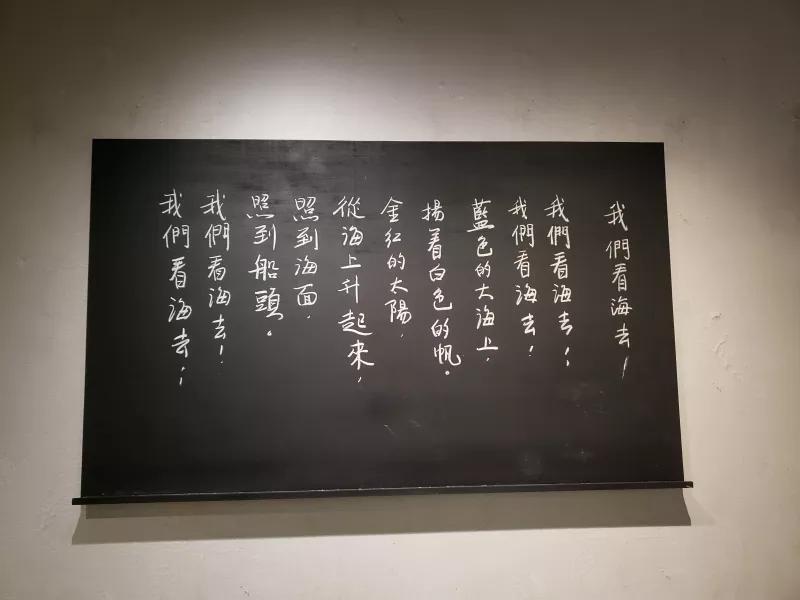 我們看海去！
我們看海去！
我們看海去！
藍色的大海上，
揚着白色的帆。
金紅的太陽，
從海上升起來，
照到海面，
照到船頭。
我們看海去！
我們看海去！